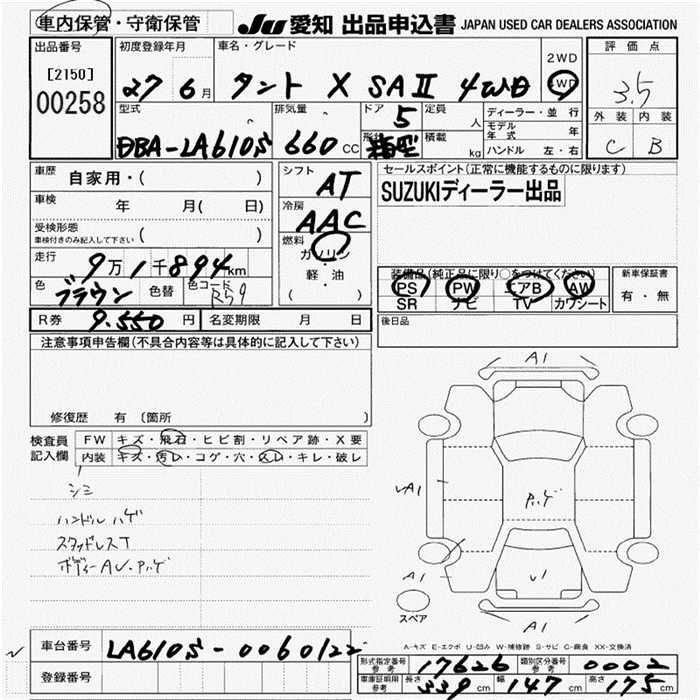 車内保管・守衛保管
JU 愛知 出品申込書 JAPAN USED CAR DEALERS ASSOCIATION
出品番号 初度登録年月 車名・グレード 評価点
[2150] 27 6月 タント X SAⅡ 4WD 2WD 4WD 3.5
00258
型式 排気量 ドア 定員 ディーラー・並行 外装 内装
DBA-LA610S 660cc 5 人 モデル年式 年 C B
形状 箱型 積載 kg ハンドル 左・右
車歴 自家用・( ) シフト AT セールスポイント(正常に機能するものに限ります)
車検 年 月( 日) 冷房 AAC SUZUKIディーラー出品
受検形態
車検付きのみ記入して下さい ( )
燃料 ガソリン
走行 9万1千894km 軽・油 装備品(純正品に限り○をつけてください) 新車保証書
色 ブラウン 色替 色コード R59 ( ) PS PW エアB AW 有・無
SR ナビ TV カワシート
R券 9.550円 名変期限 月 日 後日品
注意事項申告欄(不具合内容等は具体的に記入して下さい)
修復歴 有(箇所
検査員記入欄 FW キズ・飛石・ヒビ割・リペア跡・X要
内装 キズ・汚れ・コゲ・穴・スレ・キレ・破レ
シミ
ハンドル ハゲ
スタッドレスT
ボディーAU・Pハゲ
A1
UA1
Pハゲ
A1
U1
A1
スペア
A-キズ E-エクボ U-凹み W-補修跡 S-サビ C-腐食 XX-交換済
車台番号 LA610S-0060122
登録番号
形式指定番号 参考 17626 類別区分番号 参考 0002
車庫証明用 参考 長さ 339cm 幅 147cm 高さ 175cm